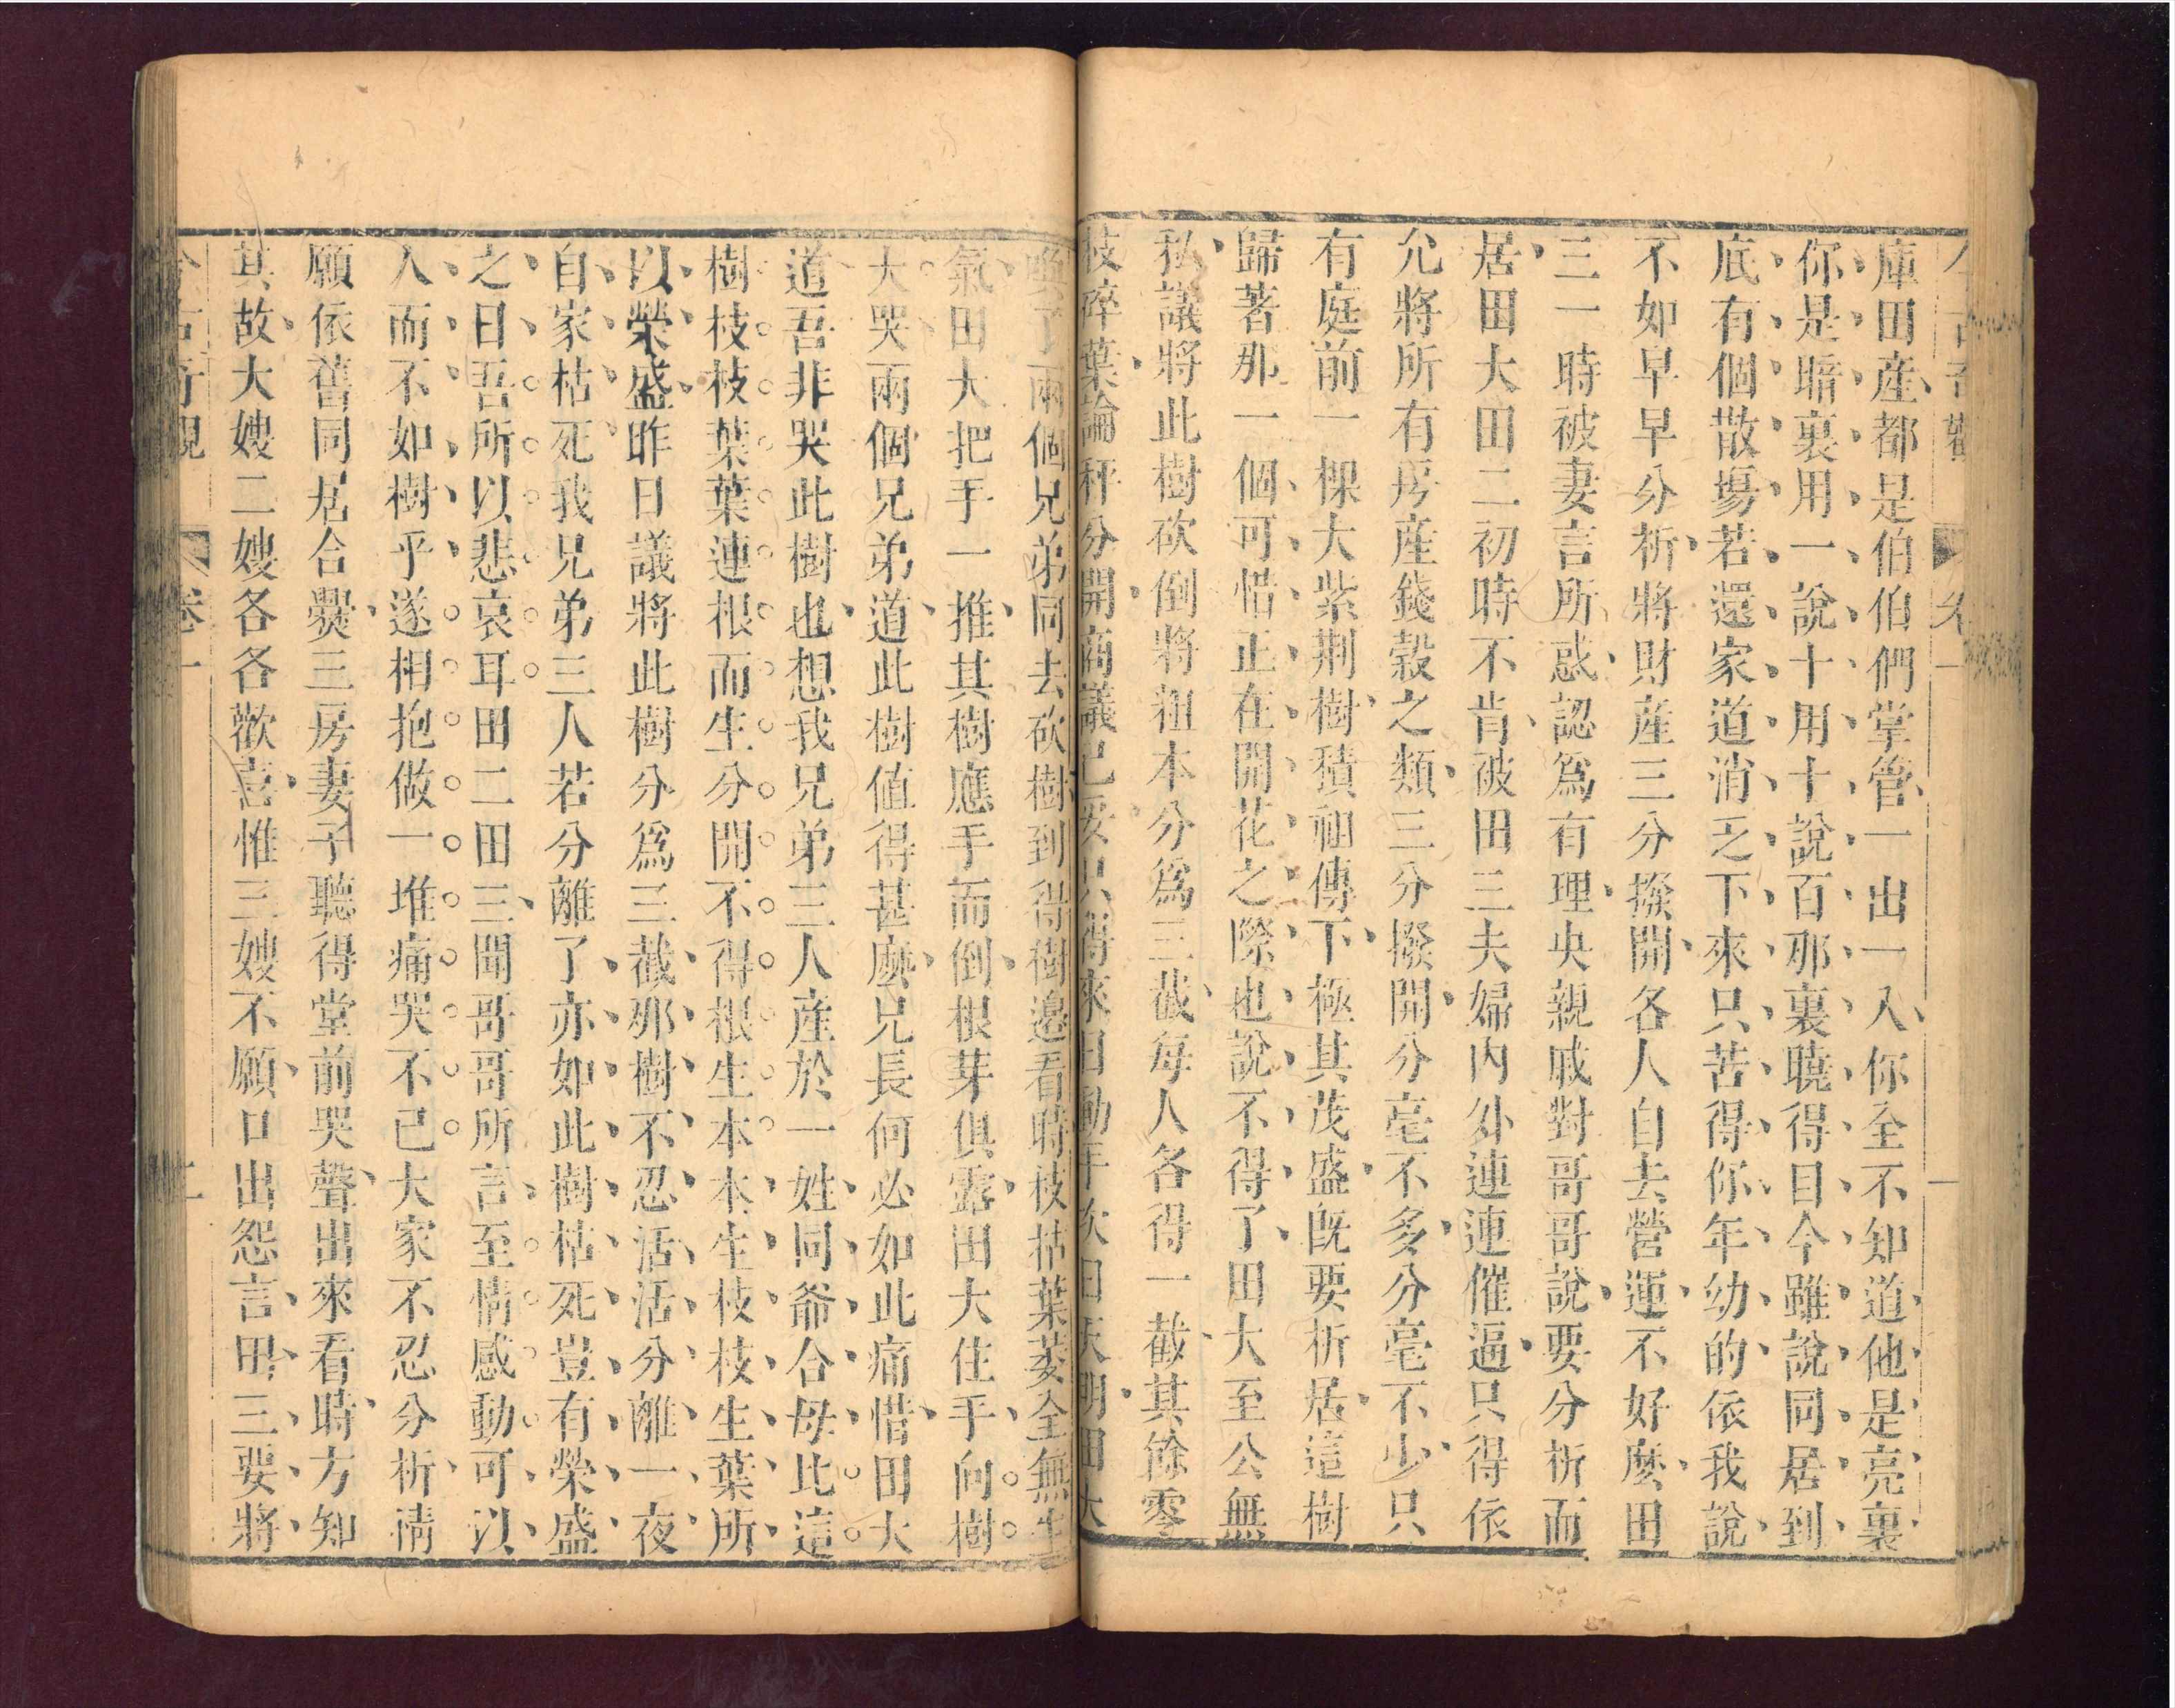 今古奇觀 卷一 一
庫田產都是伯伯們掌管一出一入你全不知道他是亮裏
你是暗裏用一說十用十說百那裏曉得目今雖說同居到
底有個散塲若還家道消乏下來只苦得你年幼的依我說
不如早早分析將財產三分撥開各人自去營運不好麼田
三一時被妻言所惑認爲有理央親戚對哥哥說要分析而
居田大田二初時不肯被田三夫婦內外連連催逼只得依
允將所有房產錢穀之類三分撥開分毫不多分毫不少只
有庭前一棵大紫荆樹積祖傳下極其茂盛旣要析居這樹
歸著那一個可惜正在開花之際也說不得了田大至公無
私議將此樹砍倒將粗本分爲三截每人各得一截其餘零
枝碎葉論秤分開商議已妥只得來日動手次日天明田大
喚了兩個兄弟同去砍樹到得樹邊看時枝枯葉萎全無生
氣田大把手一推其樹應手而倒根芽俱露田大住手向樹
大哭兩個兄弟道此樹值得甚麽兄長何必如此痛惜田大
道吾非哭此樹也想我兄弟三人產於一姓同爺合母比這
樹枝枝葉葉連根而生分開不得根生本本生枝枝生葉所
以榮盛昨日議將此樹分爲三截那樹不忍活活分離一夜
自家枯死我兄弟三人若分離了亦如此樹枯死豈有榮盛
之日吾所以悲哀耳田二田三聞哥哥所言至情感動可以
人而不如樹乎遂相抱做一堆痛哭不已大家不忍分析情
願依舊同居合爨三房妻子聽得堂前哭聲出來看時方知
其故大嫂二嫂各各歡喜惟三嫂不願口出怨言田三要將
今古奇觀 卷一 二